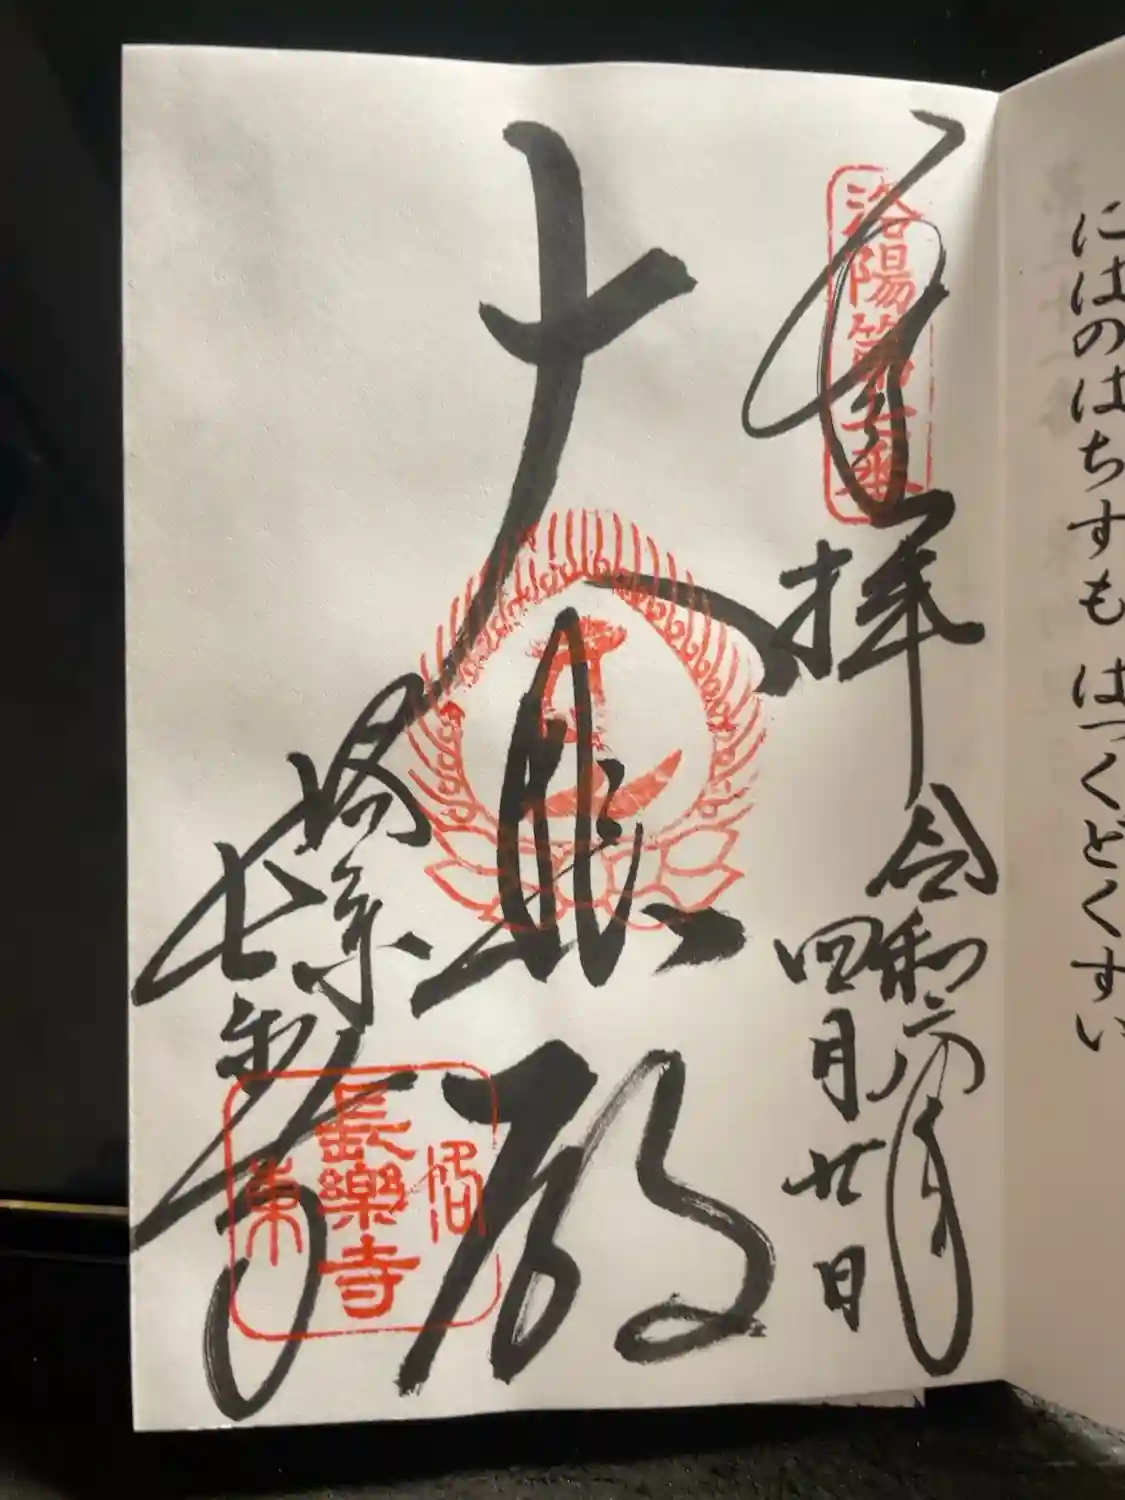 にはのはちすも はつくどくすい
奉拝
洛陽第七番
令和六年
四月廿日
大悲殿
洛東
長樂寺
洛東
長樂寺